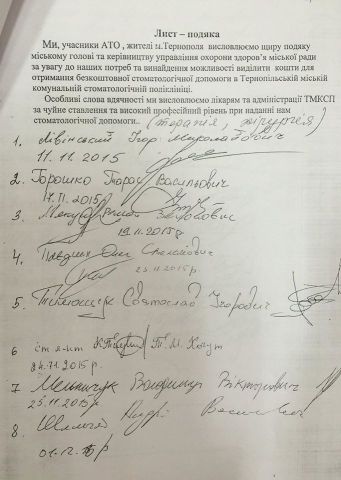 Лист – подяка
Ми, учасники АТО , жителі м.Тернополя висловлюємо щиру подяку
міському голові та керівництву управління охорони здоров'я міської ради
за увагу до наших потреб та винайдення можливості виділити кошти для
отримання безкоштовної стоматологічної допомоги в Тернопільській міській
комунальній стоматологічній поліклініці.
Особливі слова вдячності ми висловлюємо лікарям та адміністрації ТМКСП
за чуйне ставлення та високий професійний рівень при наданні нам
стоматологічної допомоги.. (терапія, хірургія)
1. Лівінський Ігор Миколайович
11.11.2015
2. Горошко Тарас Васильович
11.11.2015р
3.
19.11.2015р
4.
23.11.2015р
5. Тимощук Святослав Ігорович
6
24.11.2015р.
7 Мельничук Володимир Вікторович
25.11.2015р
8 Андрій
01.12.15р